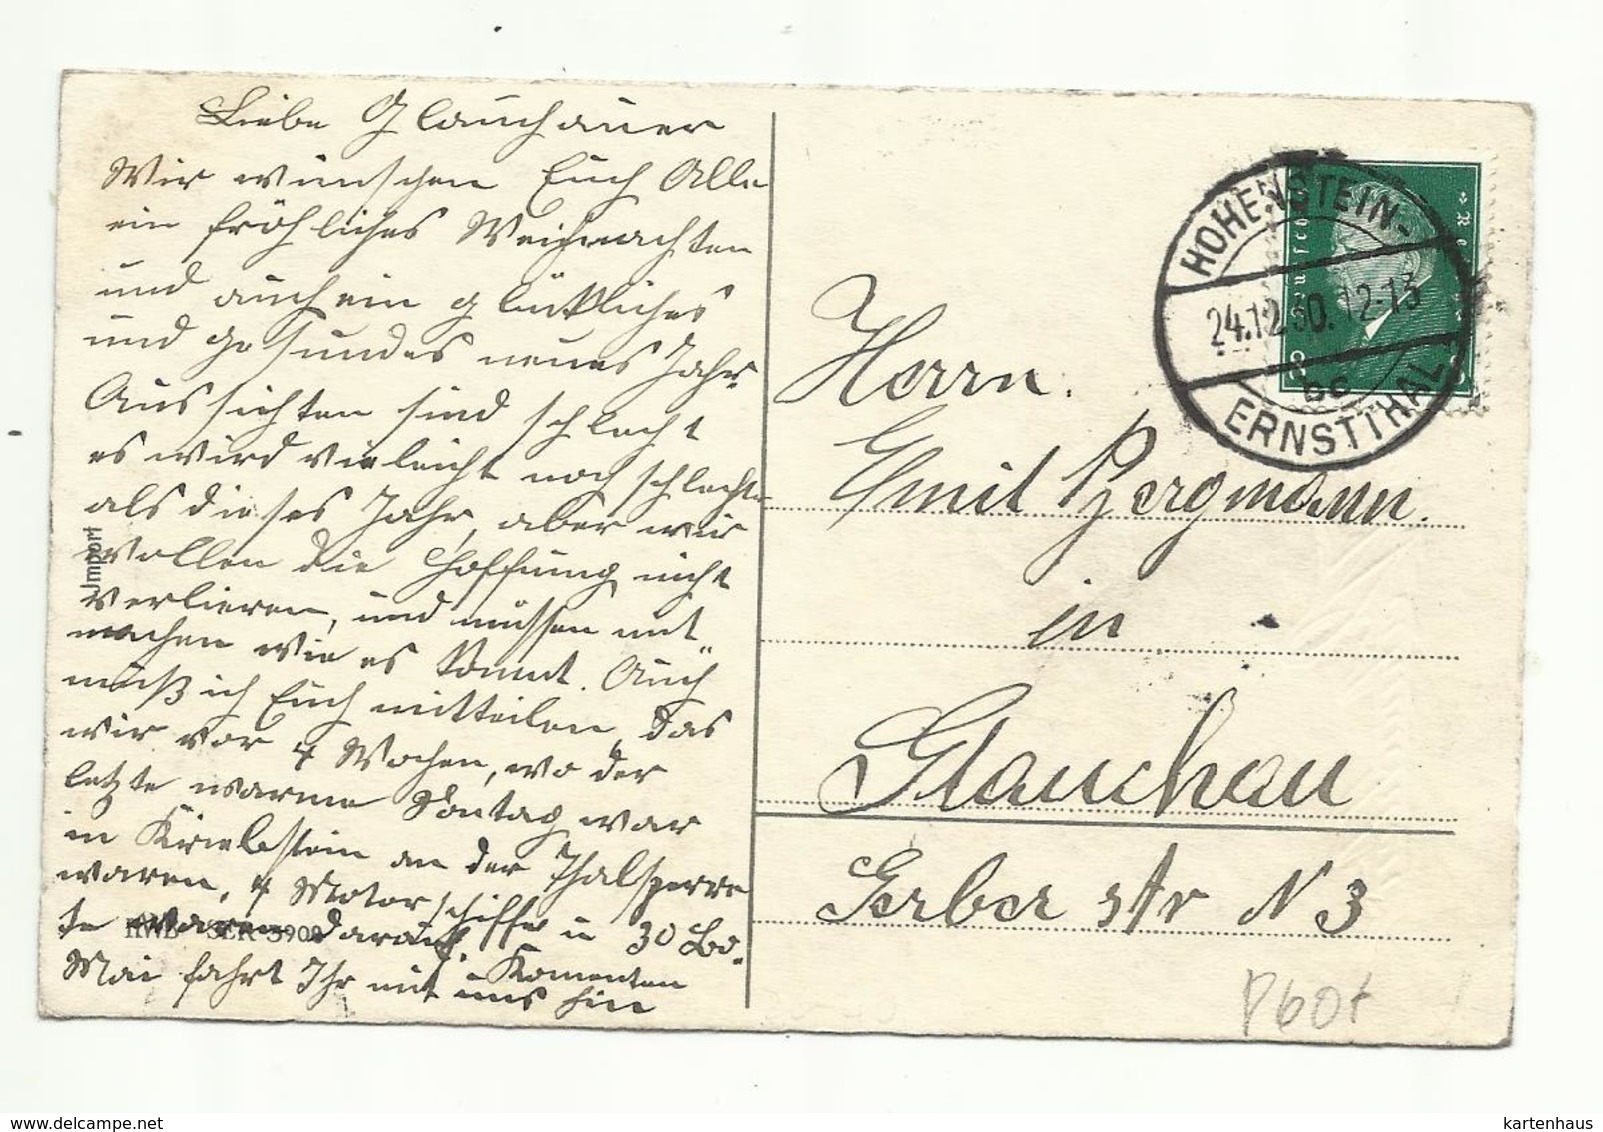 Liebe Glauchauer
Wir wünschen Euch Alle
ein fröhliches Weihnachten
und auch ein glückliches
und gesundes neues Jahr
Aussichten sind schlecht
es wird vieleicht noch schlechter
als dieses Jahr, aber wir
wollen die Hoffnung nicht
verlieren, und müssen mit
machen wie es kommt. Auch
muß ich Euch mitteilen, das
wir vor 4 Wochen, wo der
letzte warme Sontag war
in Kriebstein an der Thalsperre
waren, 4 Motorschiffe u 30 Bo-
te waren darauf.
Mai fahrt Ihr mit uns hin
Komenten
Import
HWB SER 3908
HOHENSTEIN-
24.12.30.12-13
ERNSTTHAL
Herrn.
Emil Bergmann.
in
Glauchau
Gerber str N 3
P60t
kartenhaus